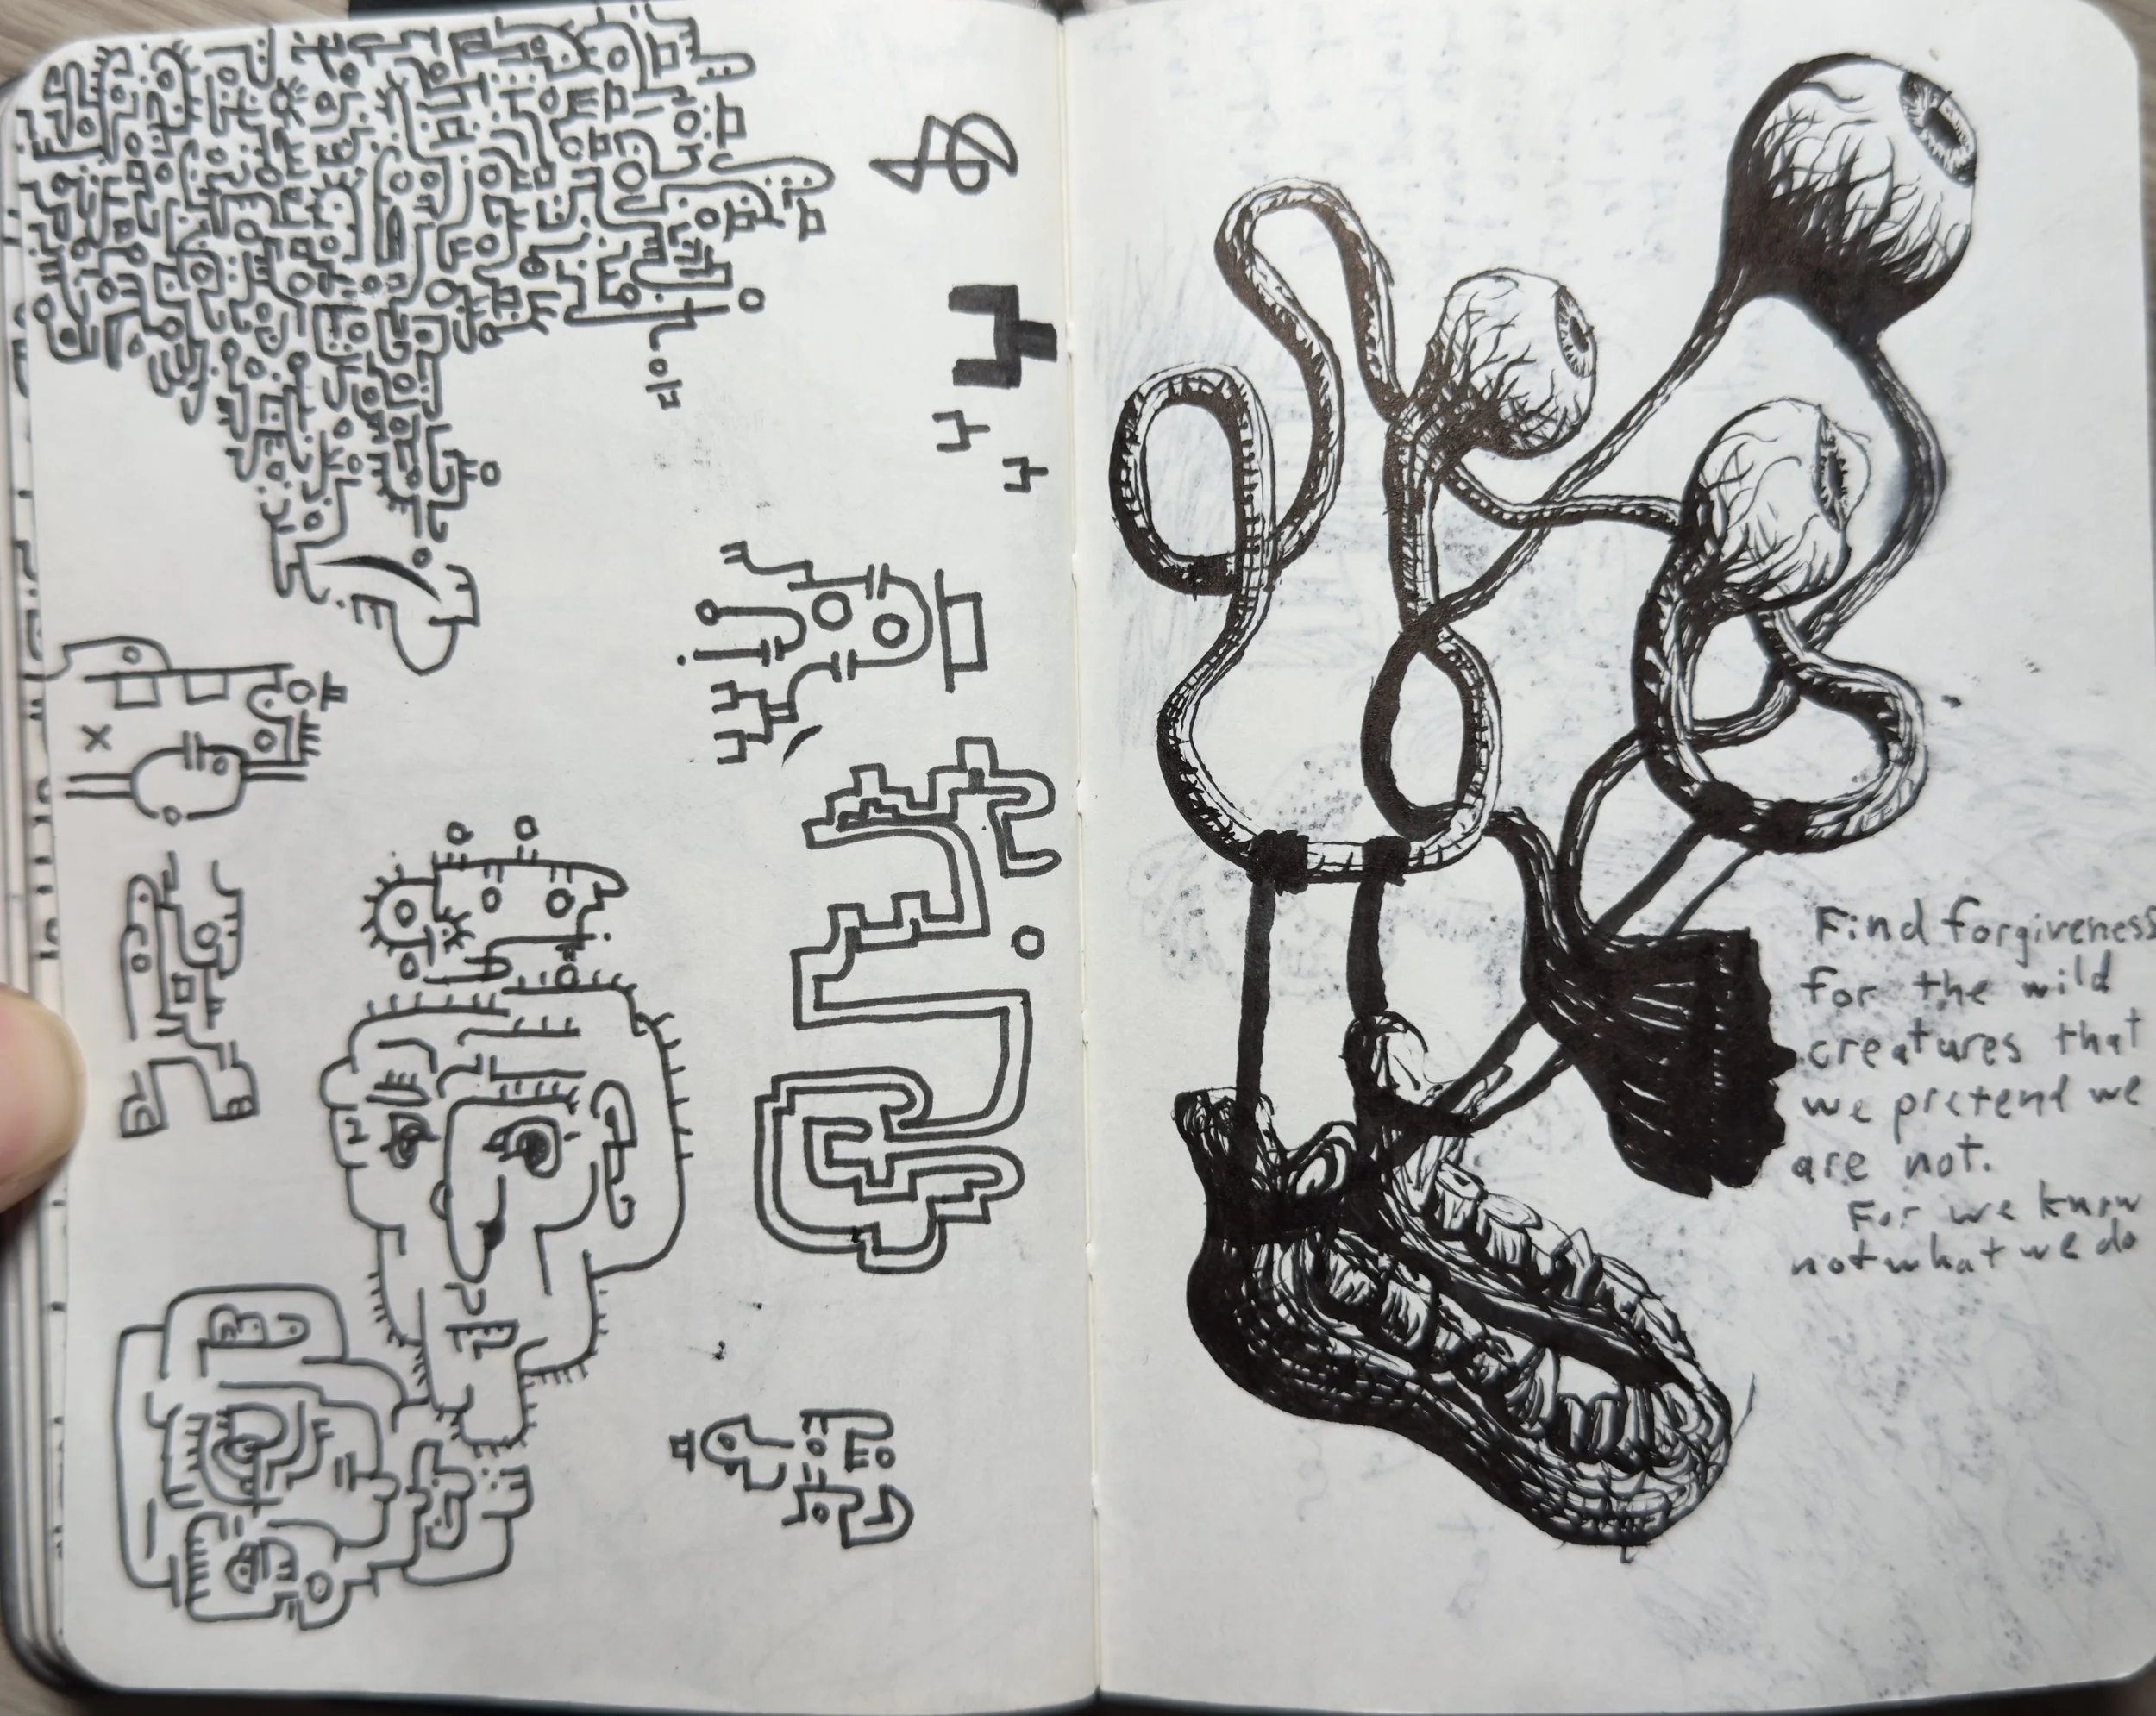 Find forgiveness
for the wild
creatures that
we pretend we
are not.
For we know
not what we do